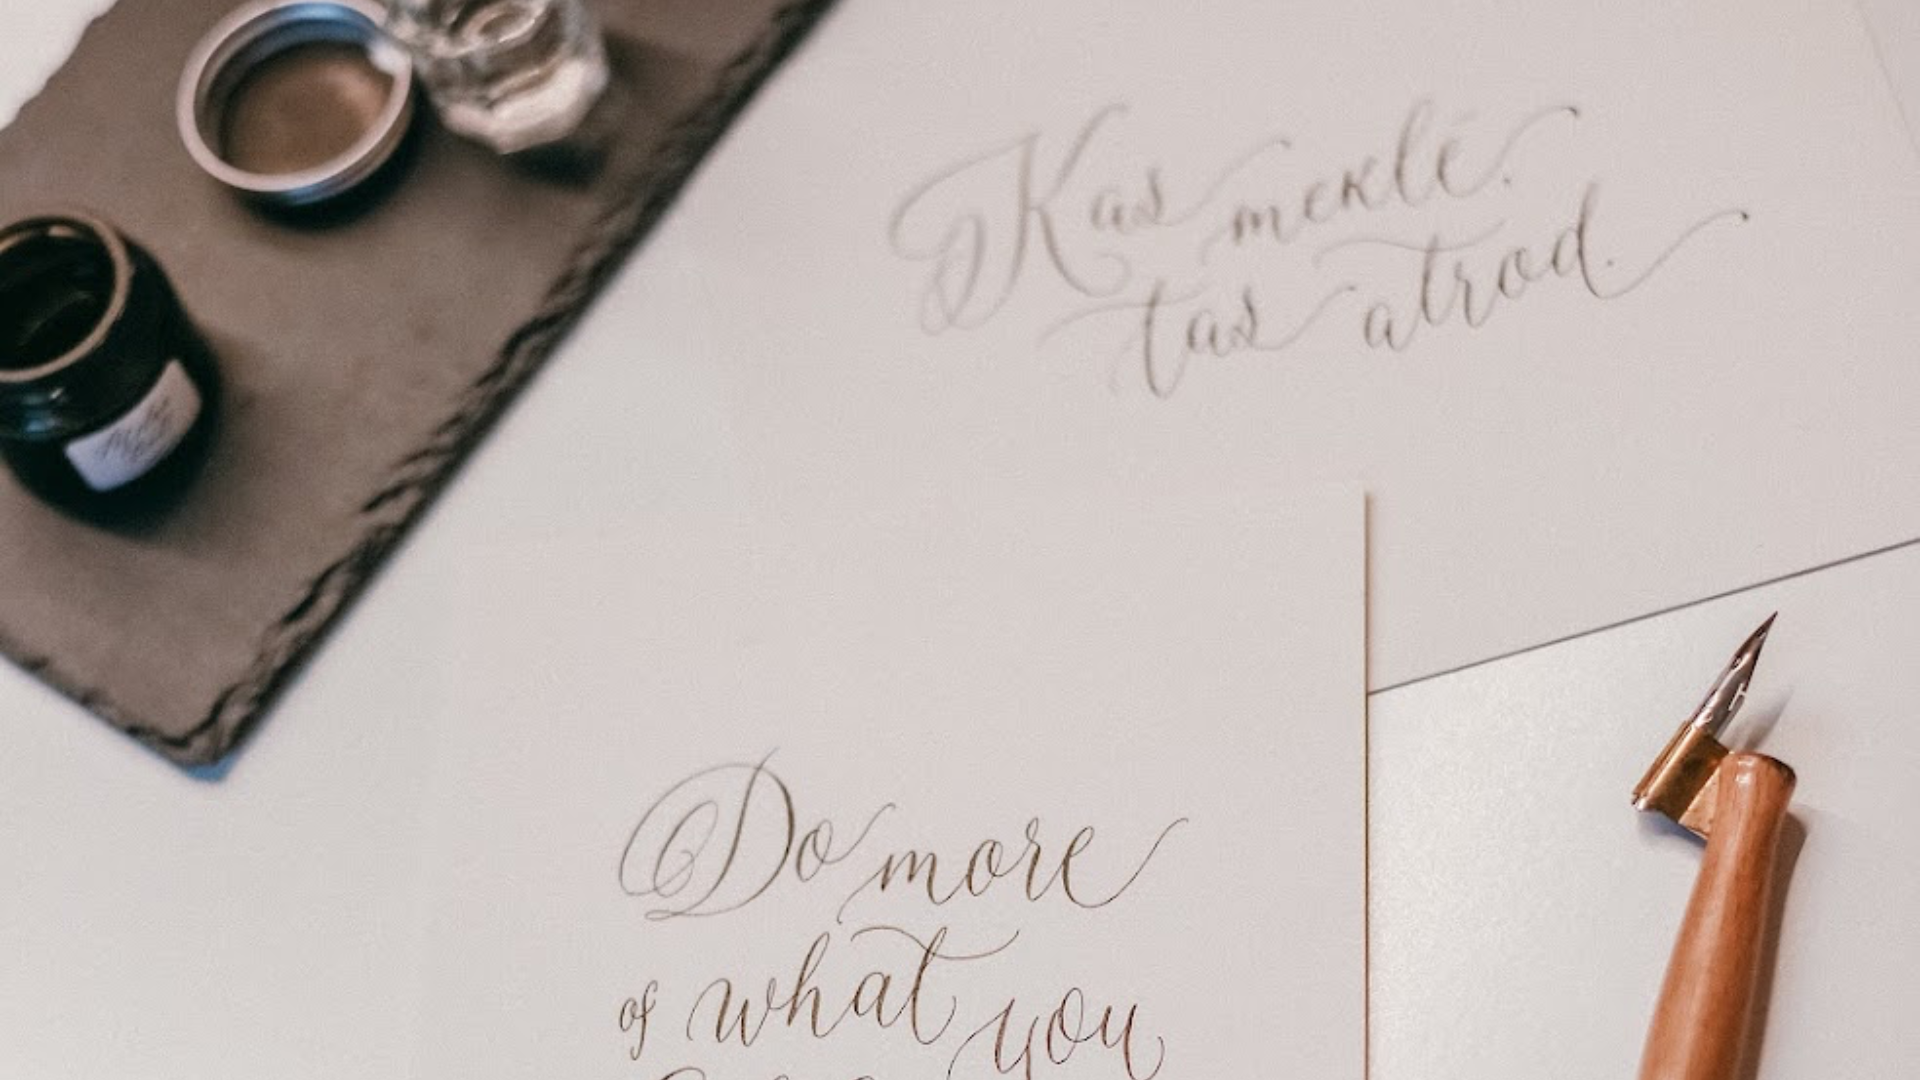 Kas meklē,
tas atrod.
Do more
of what you